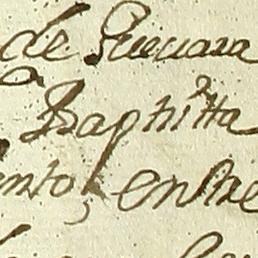 de Gueuara
Baphitta
ento, entre